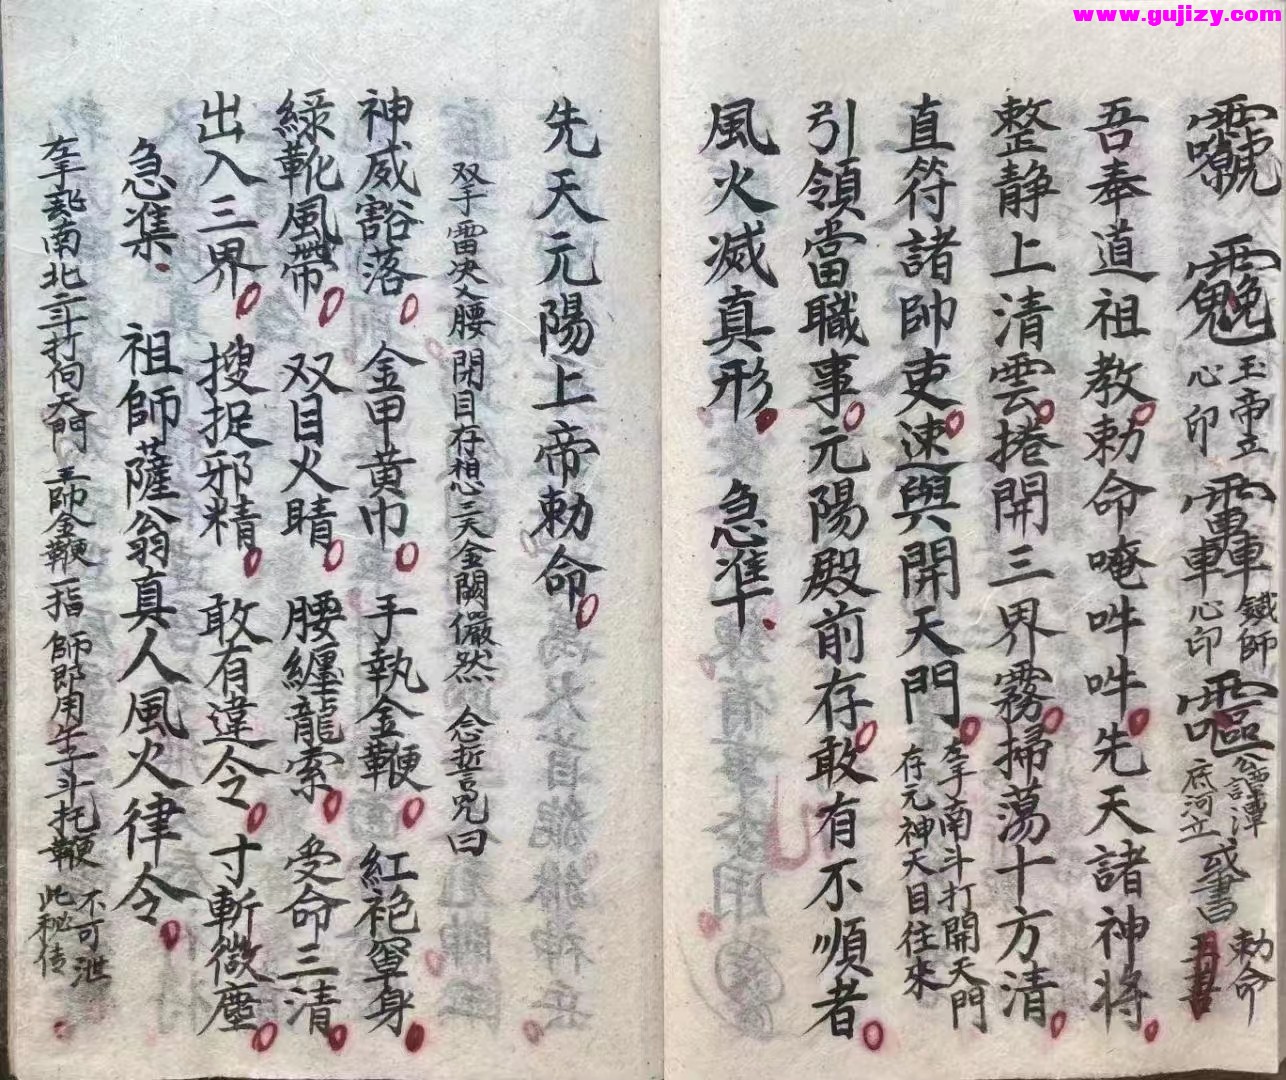 www.gujizy.com
玉帝立
心印
鐵師
車心印
譚
底河立
或書
勅命
吾奉道祖教勅命唵吽吽先天諸神將
整静上清雲捲開三界霧掃蕩十方清
直符諸帥吏速與開天門
左手南斗打開天門
存元神天目往來
引領當職事元陽殿前存敢有不順者
風火滅真形 急准
先天元陽上帝勅命
双手雷决叉腰閉目存想三天金闕儼然 念哲咒曰
神威豁落 金甲黄巾 手執金鞭 紅袍罩身
綠靴風帶 双目火睛 腰纏龍索 受命三清
出入三界 搜捉邪精 敢有違令 寸斬微塵
急准 祖師薩翁真人風火律令
左手南北二斗打向天門 王帥金鞭一指 師即用午斗托鞭
不可泄
此秘传